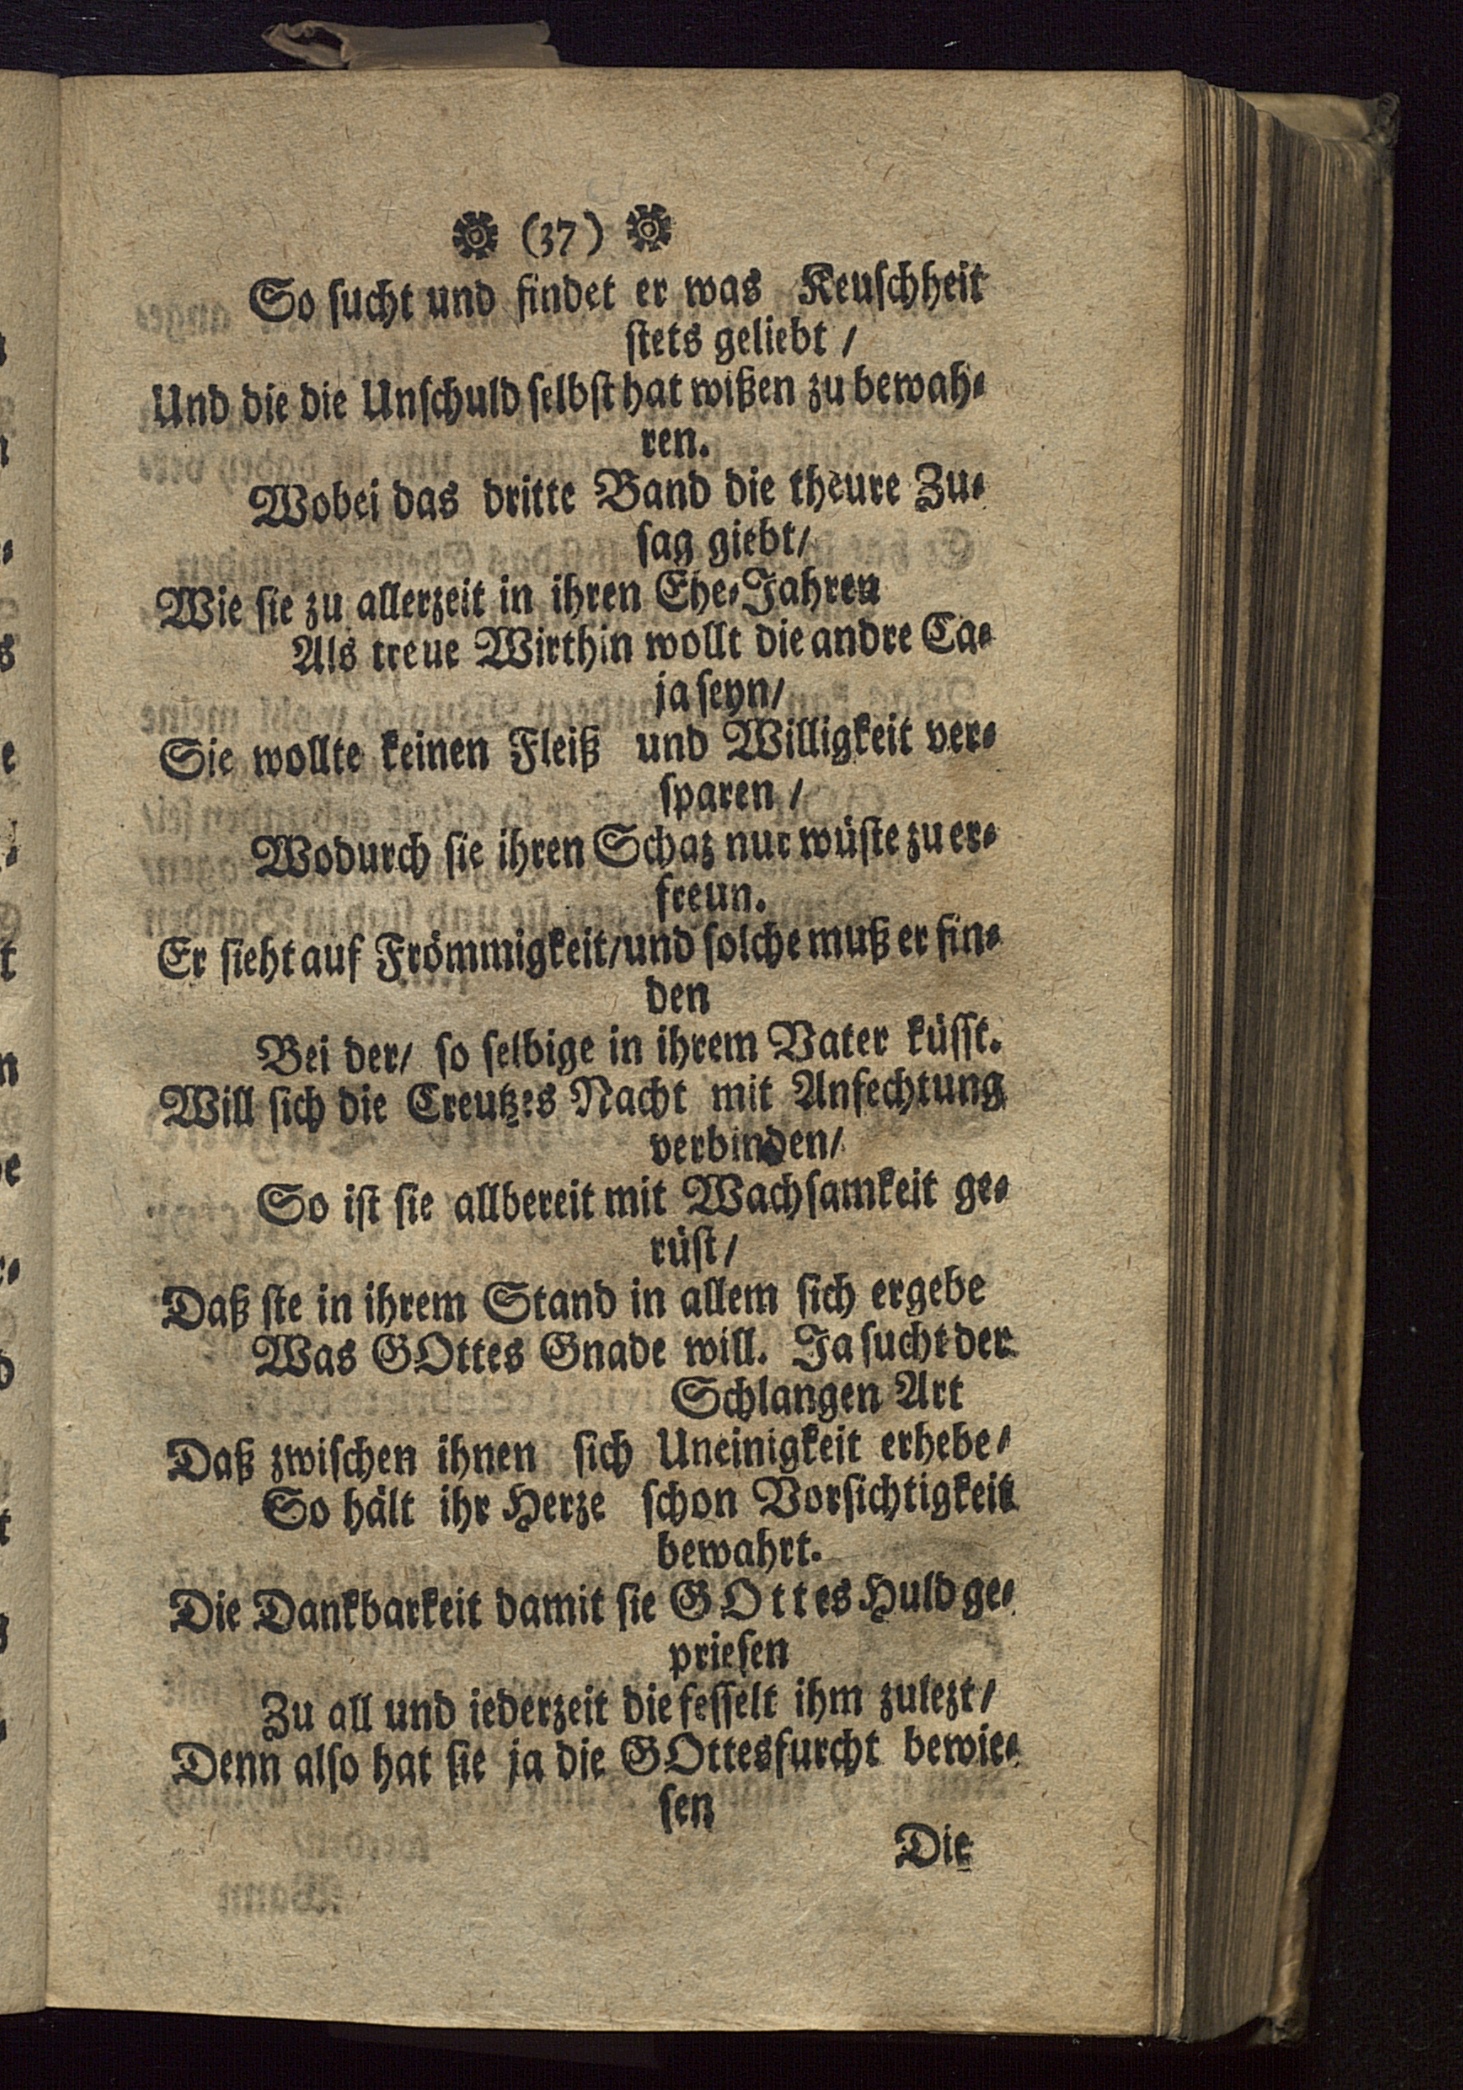 (37)
So sucht und findet er was Keuschheit
stets geliebt /
Und die die Unschuld selbst hat wißen zu bewah-
ren.
Wobei das dritte Band die theure Zu-
sag giebt/
Wie sie zu allerzeit in ihren Ehe-Jahren
Als treue Wirthin wollt die andre Ca-
ja seyn/
Sie wollte keinen Fleiß und Willigkeit ver-
sparen /
Wodurch sie ihren Schaz nur wüste zu er-
freun.
Er sieht auf Frömmigkeit/und solche muß er fin-
den
Bei der/ so selbige in ihrem Vater küsst.
Will sich die Creutzes Nacht mit Anfechtung
verbinden/
So ist sie allbereit mit Wachsamkeit ge-
rüst/
Daß ste in ihrem Stand in allem sich ergebe
Was GOttes Gnade will. Ja sucht der
Schlangen Art
Daß zwischen ihnen sich Uneinigkeit erhebe/
So hält ihr Herze schon Vorsichtigkeit
bewahrt.
Die Dankbarkeit damit sie GOttes Huld ge-
priesen
Zu all und iederzeit die fesselt ihm zulezt/
Denn also hat sie ja die GOttesfurcht bewie-
sen
Die